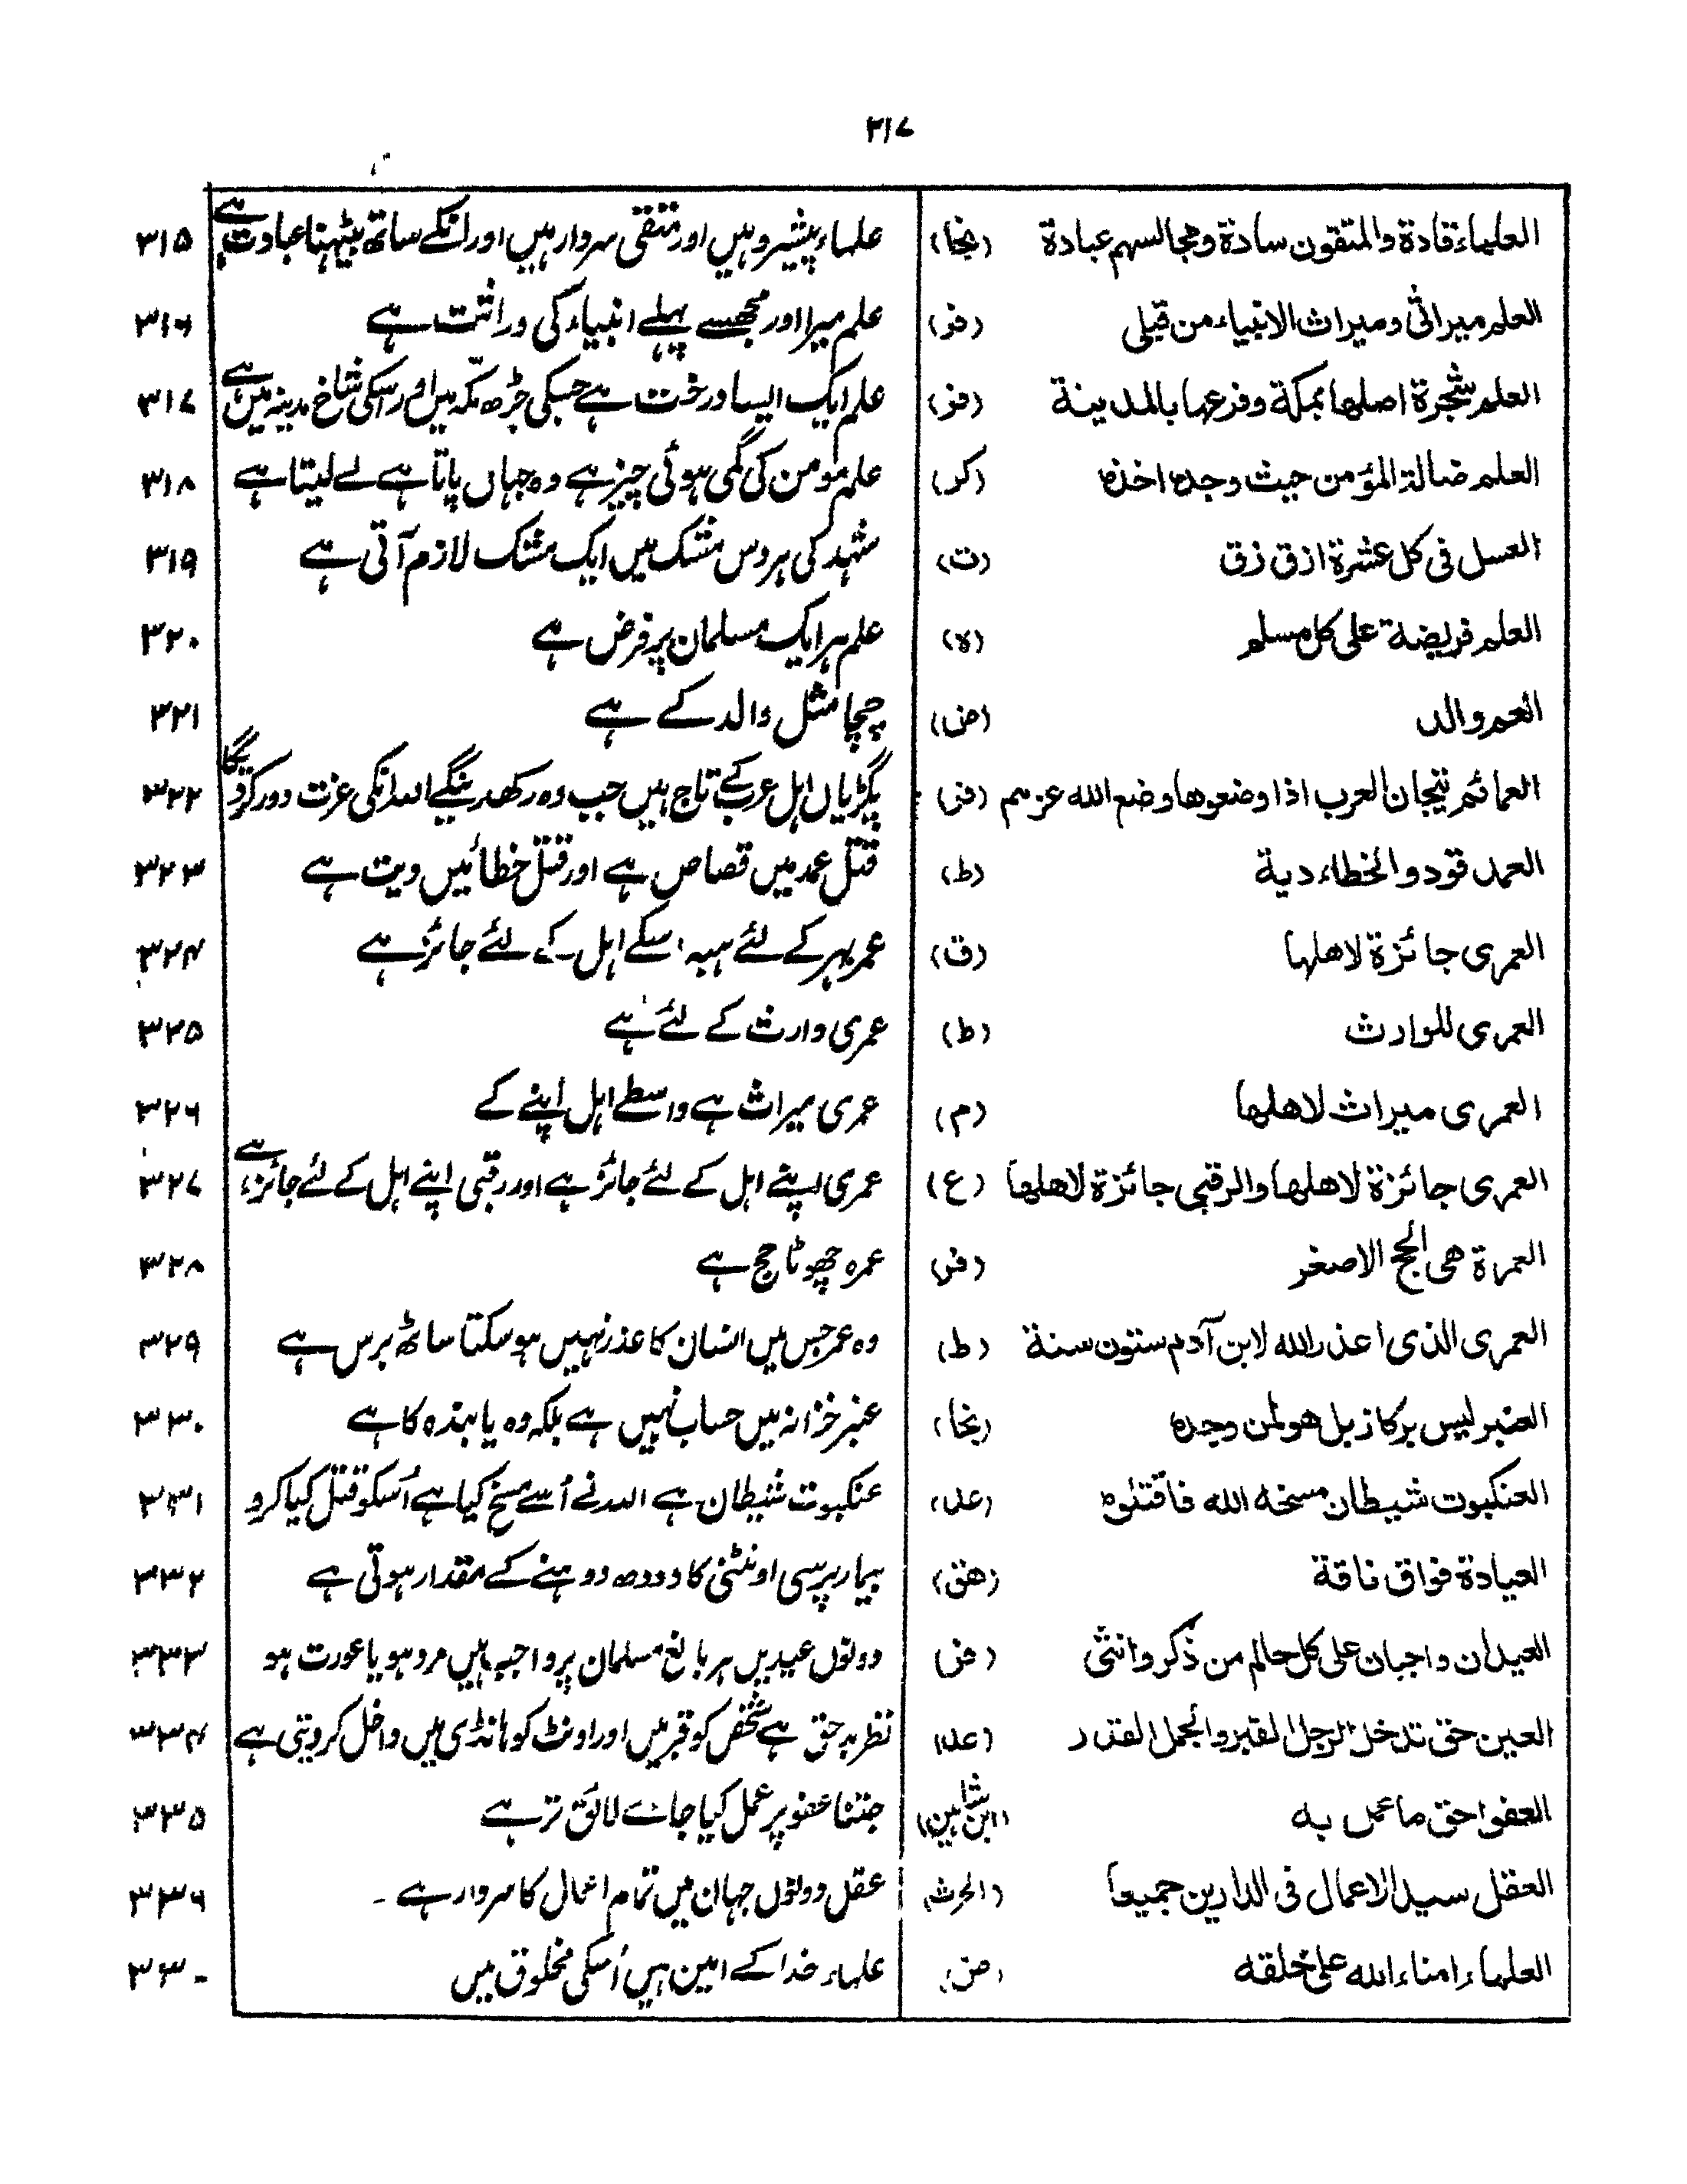 ٣١٧
العلماء قادة والمتقون سادة ومجالسهم عبادة (نجا) علماء پیشرو ہیں اور متقی سردار ہیں اور انکے ساتھ بیٹھنا عبادت ہے ٣١٥
العلم میراثی ومیراث الانبیاء من قبلی (فر) علم میرا اور مجھسے پہلے انبیاء کی وراثت ہے ٣١٦
العلم شجرة اصلها بمکة وفرعها بالمدینة (فر) علم ایک ایسا درخت ہے جسکی جڑھ مکّہ میں اور اسکی شاخ مدینہ میں ہے ٣١٧
العلم ضالة المؤمن حیث وجده اخذه (کر) علم مومن کی گمی ہوئی چیز ہے وہ جہاں پاتا ہے لے لیتا ہے ٣١٨
العسل فی کل عشرة ازق زق (ت) شہد کی ہر دس مشک میں ایک مشک لازم آتی ہے ٣١٩
العلم فریضة علی کل مسلم (ہ) علم ہر ایک مسلمان پر فرض ہے ٣٢٠
العم والد (ض) چچا مثل والد کے ہے ٣٢١
العمائم تیجان العرب اذا وضعوها وضع الله عزهم (فر) پگڑیاں اہل عرب کے تاج ہیں جب وہ رکھدینگے اللہ انکی عزت دور کر دیگا ٣٢٢
العمد قود والخطاء دیة (ط) قتل عمد میں قصاص ہے اور قتل خطائیں دیت ہے ٣٢٣
العمری جائزة لاهلها (ق) عمر بہر کے لئے ہبہ اسکے اہل کے لئے جائز ہے ٣٢٤
العمری للوارث (ط) عمری وارث کے لئے ہے ٣٢٥
العمری میراث لاهلها (م) عمری میراث ہے واسطے اہل اپنے کے ٣٢٦
العمری جائزة لاهلها والرقبی جائزة لاهلها (ع) عمری اپنے اہل کے لئے جائز ہے اور رقبی اپنے اہل کے لئے جائز ہے ٣٢٧
العمرة هی الحج الاصغر (فر) عمرہ چھوٹا حج ہے ٣٢٨
العمری الذی اعذر الله لابن آدم ستون سنة (ط) وہ عمر جس میں انسان کا عذر نہیں ہو سکتا ساٹھ برس ہے ٣٢٩
العنبر لیس برکاز بل هو لمن وجده (نجا) عنبر خزانہ میں حساب نہیں ہے بلکہ وہ یابندہ کا ہے ٣٣٠
العنکبوت شیطان مسخه الله فاقتلوه (عد) عنکبوت شیطان ہے اللہ نے اُسے مسخ کیا ہے اُسکو قتل کیا کرو ٣٣١
العیادة فواق ناقة (هق) بیمار پرسی اونٹنی کا دودھ دوہنے کے مقدار ہوتی ہے ٣٣٢
العیدان واجبان علی کل حالم من ذکر وانثی (فر) دونوں عیدیں ہر بالغ مسلمان پر واجب ہیں مرد ہو یا عورت ہو ٣٣٣
العین حق تدخل الرجل القبر والجمل القدر (عد) نظر بد حق ہے شخص کو قبر میں اور اونٹ کو ہانڈی میں داخل کر دیتی ہے ٣٣٤
العفو احق ما عمل به (ابن شاہین) جتنا عفو پر عمل کیا جائے لائق تر ہے ٣٣٥
العقل سید الاعمال فی الدارین جمیعا (الحرث) عقل دونوں جہان میں تمام اعمال کا سردار ہے - ٣٣٦
العلماء امناء الله علی خلقه علماء خدا کے امین ہیں اُسکی مخلوق میں ٣٣٠